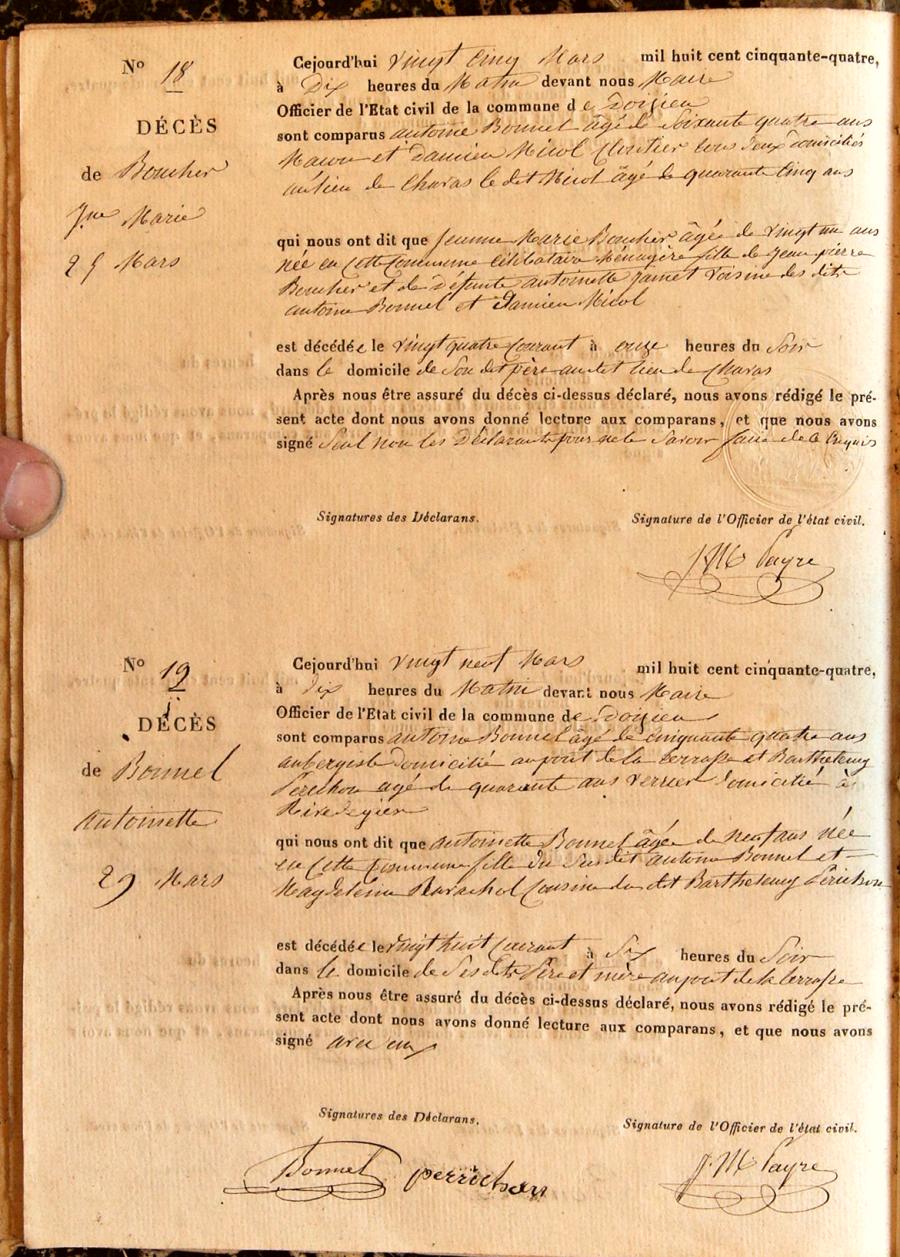 N° 18
DÉCÈS
de Boucher
Jne Marie
25 Mars
Cejourd'hui vingt cinq Mars mil huit cent cinquante-quatre,
à Dix heures du Matin devant nous Maire
Officier de l'Etat civil de la commune de Doizieu
sont comparus antoine Bonnel âgé de Soixante quatre ans
Macon et Damien Nicol Cloutier tous deux domiciliés
au lieu de Charas le dit Nicol âgé de quarante Cinq ans
qui nous ont dit que Jeanne Marie Boucher âgée de vingt un ans
née en cette Commune célibataire Ménagère fille de Jean pierre
Boucher et de défunte antoinette Jamet voisine des dits
antoine Bonnel et Damien Nicol
est décédée le vingt quatre Courant à onze heures du Soir
dans le domicile de Son dit père au dit lieu de Charas
Après nous être assuré du décès ci-dessus déclaré, nous avons rédigé le pré-
sent acte dont nous avons donné lecture aux comparans, et que nous avons
signé Seul non les Déclarants pour ne le Savoir faire de ce Requis
Signatures des Déclarans.
Signature de l'Officier de l'état civil.
J. M. Payre
N° 19
DÉCÈS
de Bonnel
Antoinette
29 Mars
Cejourd'hui vingt neuf Mars mil huit cent cinquante-quatre,
à dix heures du Matin devant nous Maire
Officier de l'Etat civil de la commune de Doizieu
sont comparus antoine Bonnel âgé de cinquante quatre ans
aubergiste Domicilié au pont de la terrasse et Barthelemy
Perichon agé de quarante ans verrier Domicilié à
Rive de gier
qui nous ont dit que antoinette Bonnel âgée de neuf ans née
en Cette Commune fille du Susdit antoine Bonnel et
Magdeleine Cousine du dit Barthelemy Périchon
est décédée le vingt huit Courant à Six heures du Soir
dans le domicile de Ses dits Père et mère au pont de la terrasse
Après nous être assuré du décès ci-dessus déclaré, nous avons rédigé le pré-
sent acte dont nous avons donné lecture aux comparans, et que nous avons
signé avec eux
Signatures des Déclarans.
Signature de l'Officier de l'état civil.
Bonnel perrichon
J. M. Payre